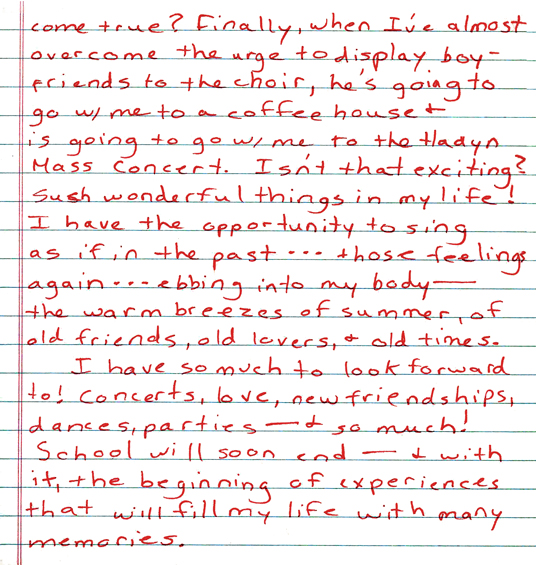 come true? Finally, when I've almost
overcome the urge to display boy-
friends to the choir, he's going to
go w/ me to a coffee house &
is going to go w/ me to the Hadyn
Mass Concert. Isn't that exciting?
Sush wonderful things in my life!
I have the opportunity to sing
as if in the past... those feelings
again... ebbing into my body—
the warm breezes of summer, of
old friends, old lovers, & old times.
I have so much to look forward
to! Concerts, love, new friendships,
dances, parties — & so much!
School will soon end — & with
it, the beginning of experiences
that will fill my life with many
memories.